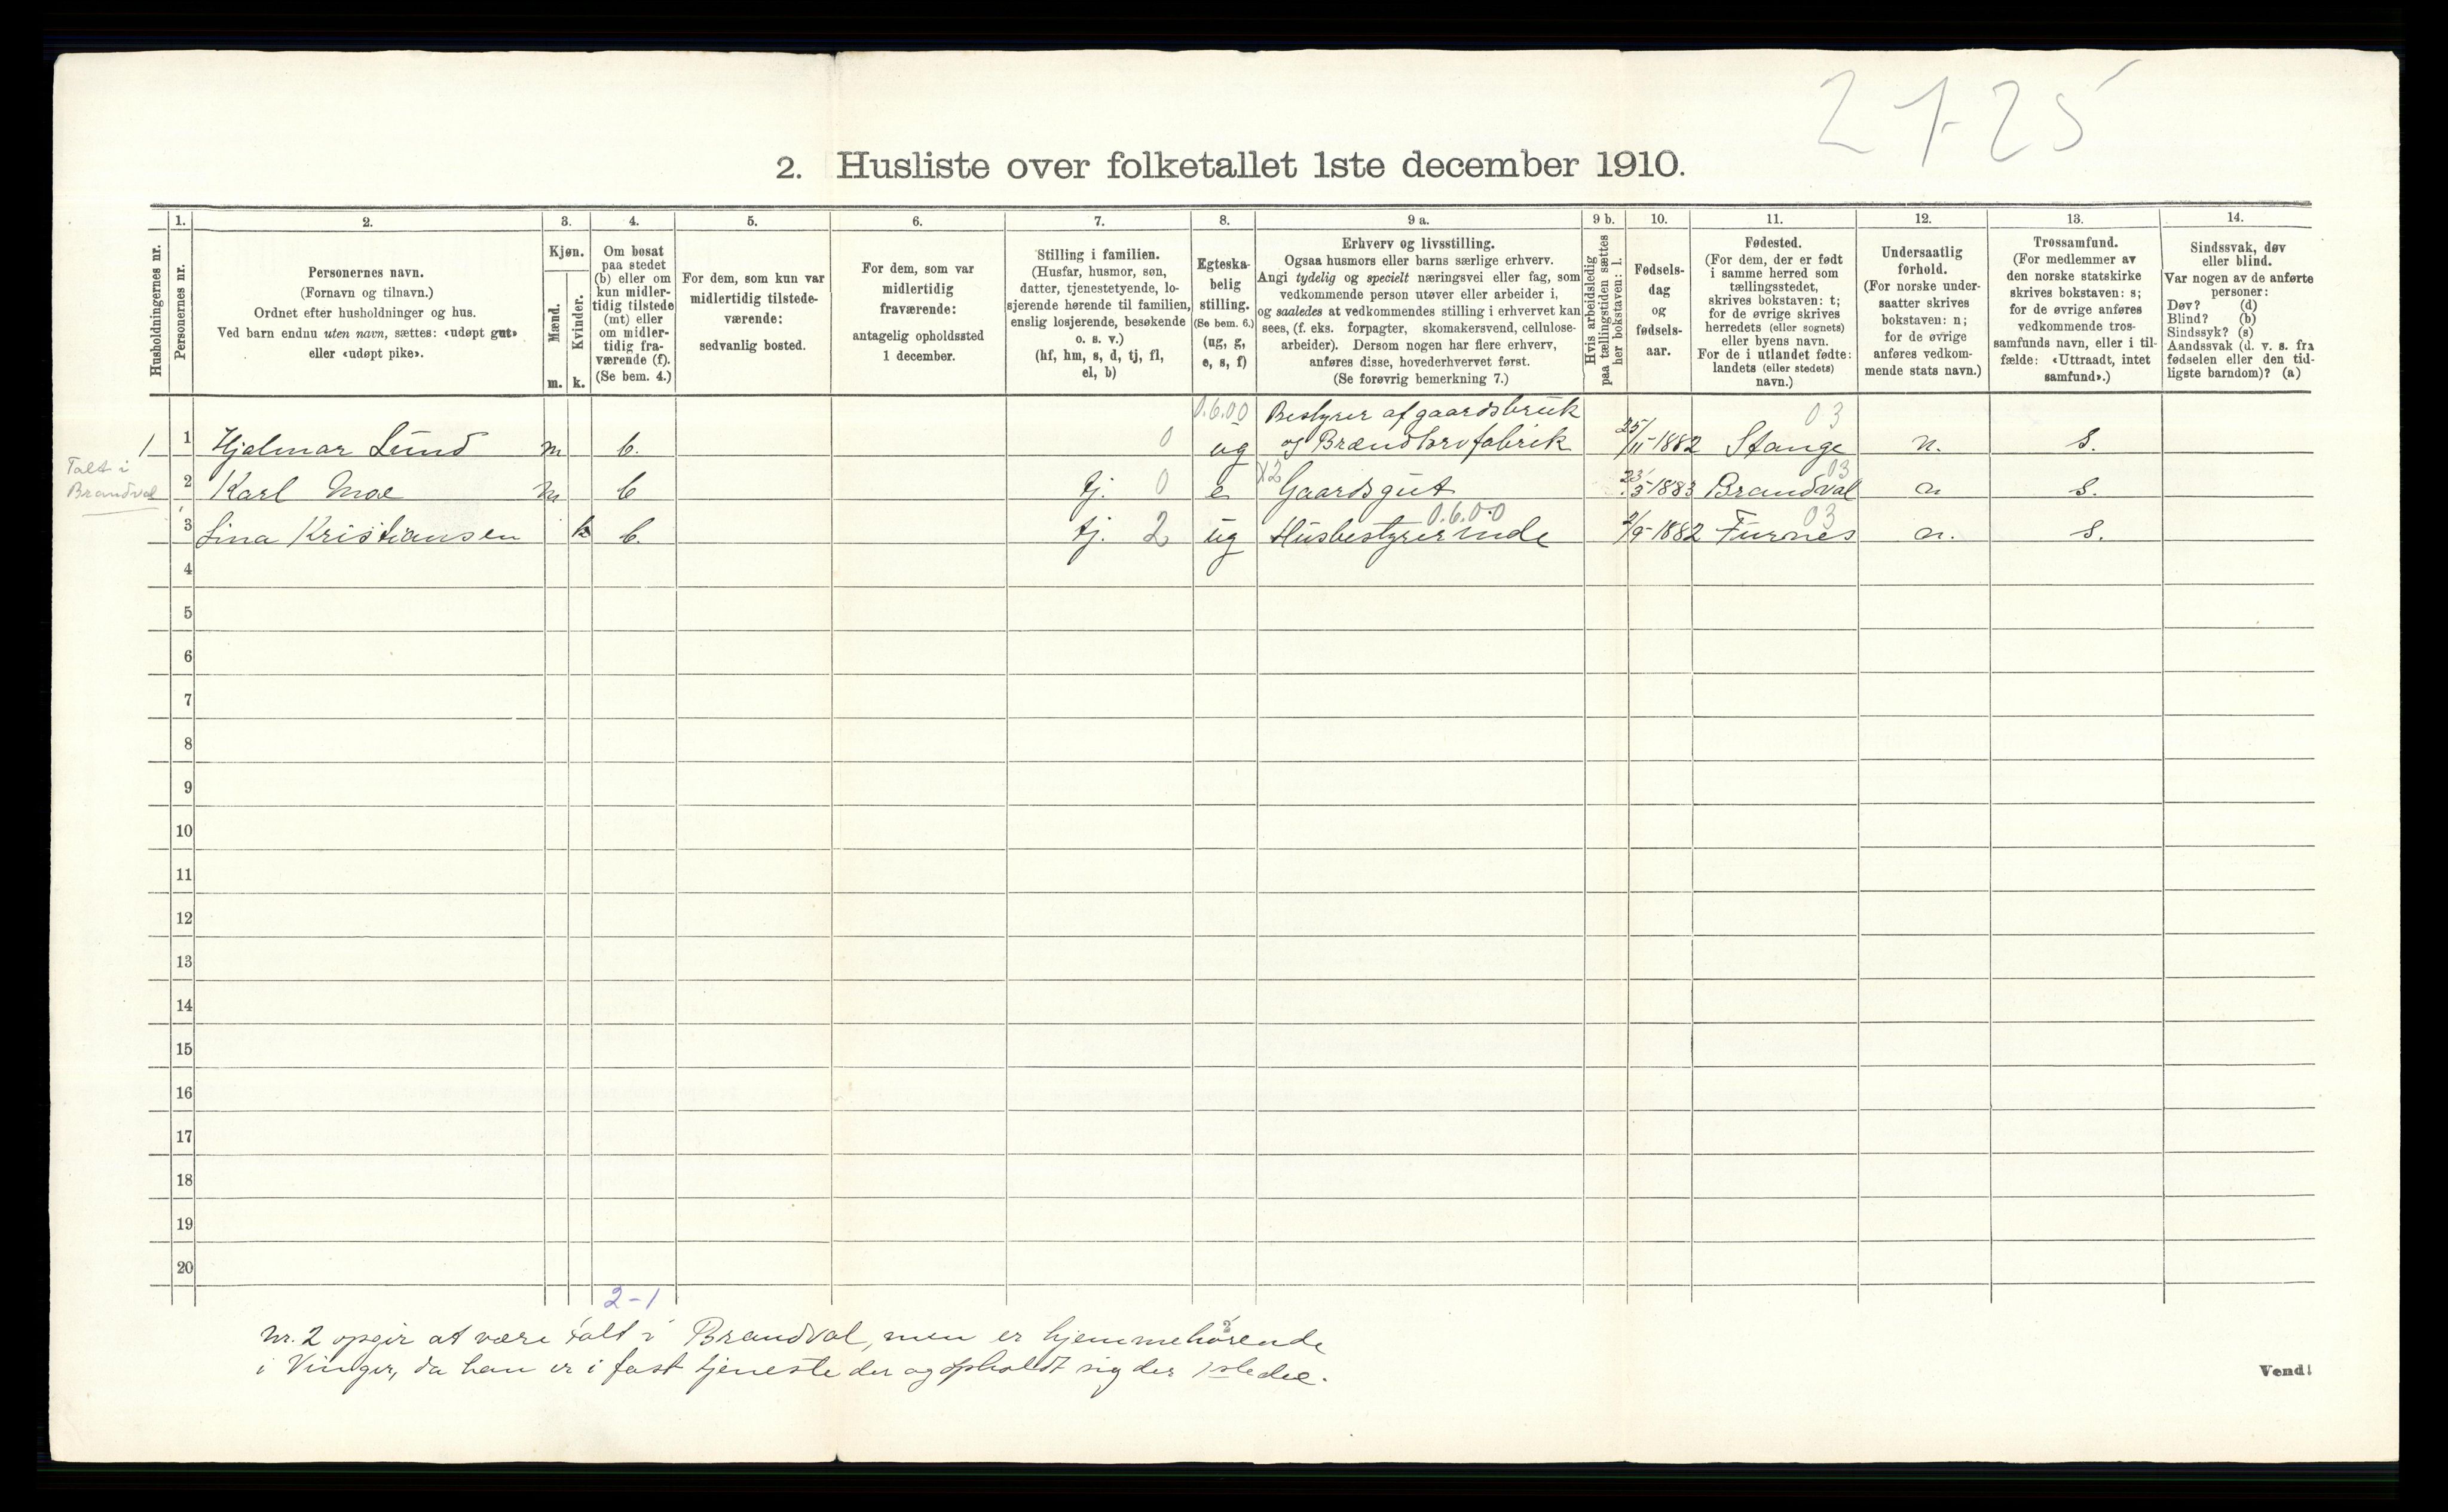 27-25
2. Husliste over folketallet 1ste december 1910.
1. 2. 3. 4. 5. 6. 7. 8. 9 a. 9 b. 10. 11. 12. 13. 14.
Husholdningernes nr.
Personernes nr.
Personernes navn.
(Fornavn og tilnavn.)
Ordnet efter husholdninger og hus.
Ved barn endnu uten navn, sættes: «udøpt gut»
eller «udøpt pike».
Kjøn.
Mænd.
Kvinder.
m. k.
Om bosat
paa stedet
(b) eller om
kun midler-
tidig tilstede
(mt) eller
om midler-
tidig fra-
værende (f).
(Se bem. 4.)
For dem, som kun var
midlertidig tilstede-
værende:
sedvanlig bosted.
For dem, som var
midlertidig
fraværende:
antagelig opholdssted
1 december.
Stilling i familien.
(Husfar, husmor, søn,
datter, tjenestetyende, lo-
sjerende hørende til familien,
enslig losjerende, besøkende
o. s. v.)
(hf, hm, s, d, tj, fl,
el, b)
Egteska-
belig
stilling.
(Se bem. 6.)
(ug, g,
e, s, f)
Erhverv og livsstilling.
Ogsaa husmors eller barns særlige erhverv.
Angi tydelig og specielt næringsvei eller fag, som
vedkommende person utøver eller arbeider i,
og saaledes at vedkommendes stilling i erhvervet kan
sees, (f. eks. forpagter, skomakersvend, cellulose-
arbeider). Dersom nogen har flere erhverv,
anføres disse, hovederhvervet først.
(Se forøvrig bemerkning 7.)
Hvis arbeidsledig
paa tællingstiden sættes
her bokstaven: l.
Fødsels-
dag
og
fødsels-
aar.
Fødested.
(For dem, der er født
i samme herred som
tællingsstedet,
skrives bokstaven: t;
for de øvrige skrives
herredets (eller sognets)
eller byens navn.
For de i utlandet fødte:
landets (eller stedets)
navn.)
Undersaatlig
forhold.
(For norske under-
saatter skrives
bokstaven: n;
for de øvrige
anføres vedkom-
mende stats navn.)
Trossamfund.
(For medlemmer av
den norske statskirke
skrives bokstaven: s;
for de øvrige anføres
vedkommende tros-
samfunds navn, eller i til-
fælde: «Uttraadt, intet
samfund».)
Sindssvak, døv
eller blind.
Var nogen av de anførte
personer:
Døv? (d)
Blind? (b)
Sindssyk? (s)
Aandssvak (d. v. s. fra
fødselen eller den tid-
ligste barndom)? (a)
0.6.00 Bestyrer af gaardsbruk 03
1 1 Hjalmar Lund m b. 0 ug og Brændtorvfabrik 25/11-1882 Stange n. s.
Talt i
Brandval
2 Karl Moe m b tj. 0 e X2 Gaardsgut 1883 Brandval 03 n s.
0.6.00 03
3 Lina Kristiansen k b. tj. 2 ug Husbestyrerinde 2/9-1882 Furnes n. s.
4
5
6
7
8
9
10
11
12
13
14
15
16
17
18
19
20
2-1
Nr. 2 opgir at være talt i Brandval, men er hjemmehørende
i Vinger, da han er i fast tjeneste der og opholdt sig der 1ste dec.
2
Vend!